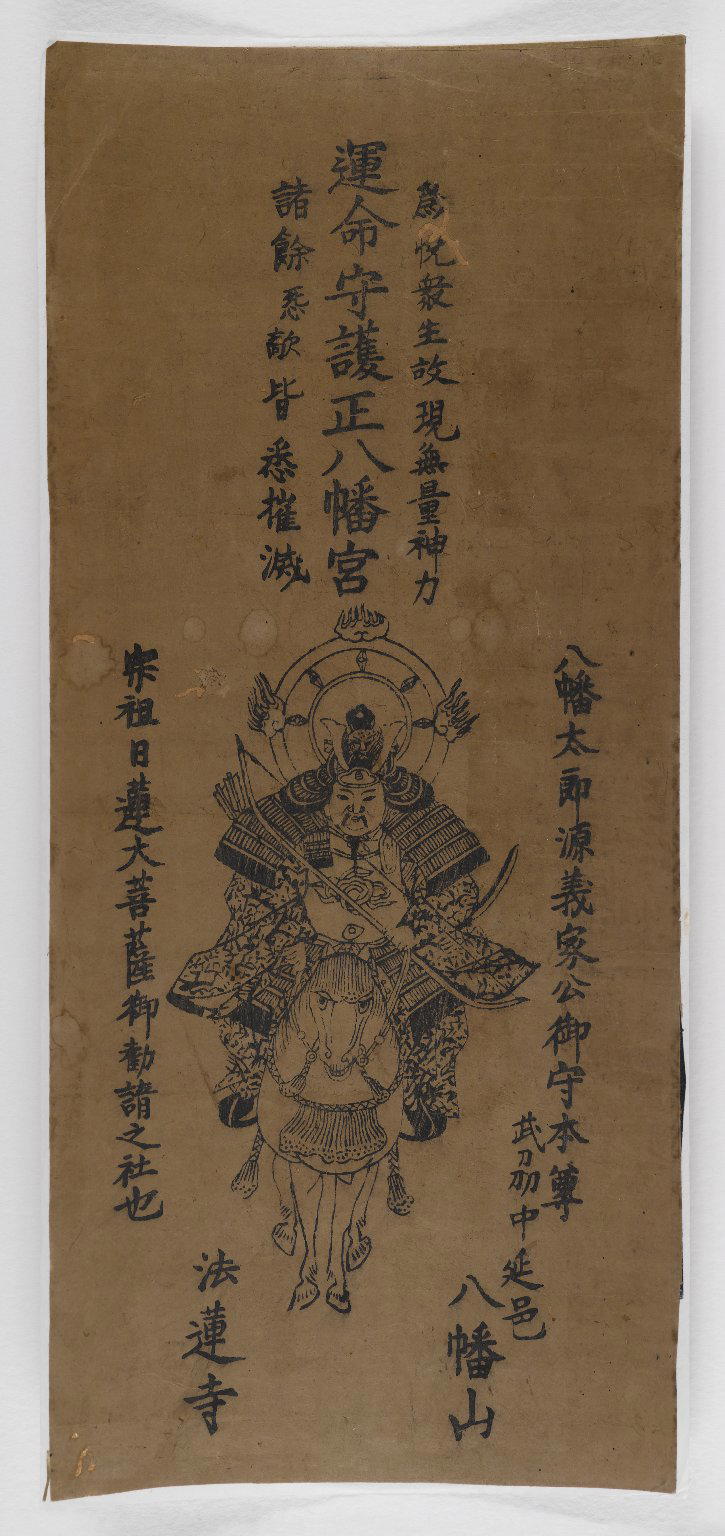 爲悦衆生故現無量神力
運命守護正八幡宮
諸餘怨敵皆悉摧滅
八幡太郎源義家公御守本尊
武刕中延邑
八幡山
法蓮寺
宗祖日蓮大菩薩御勧請之社也